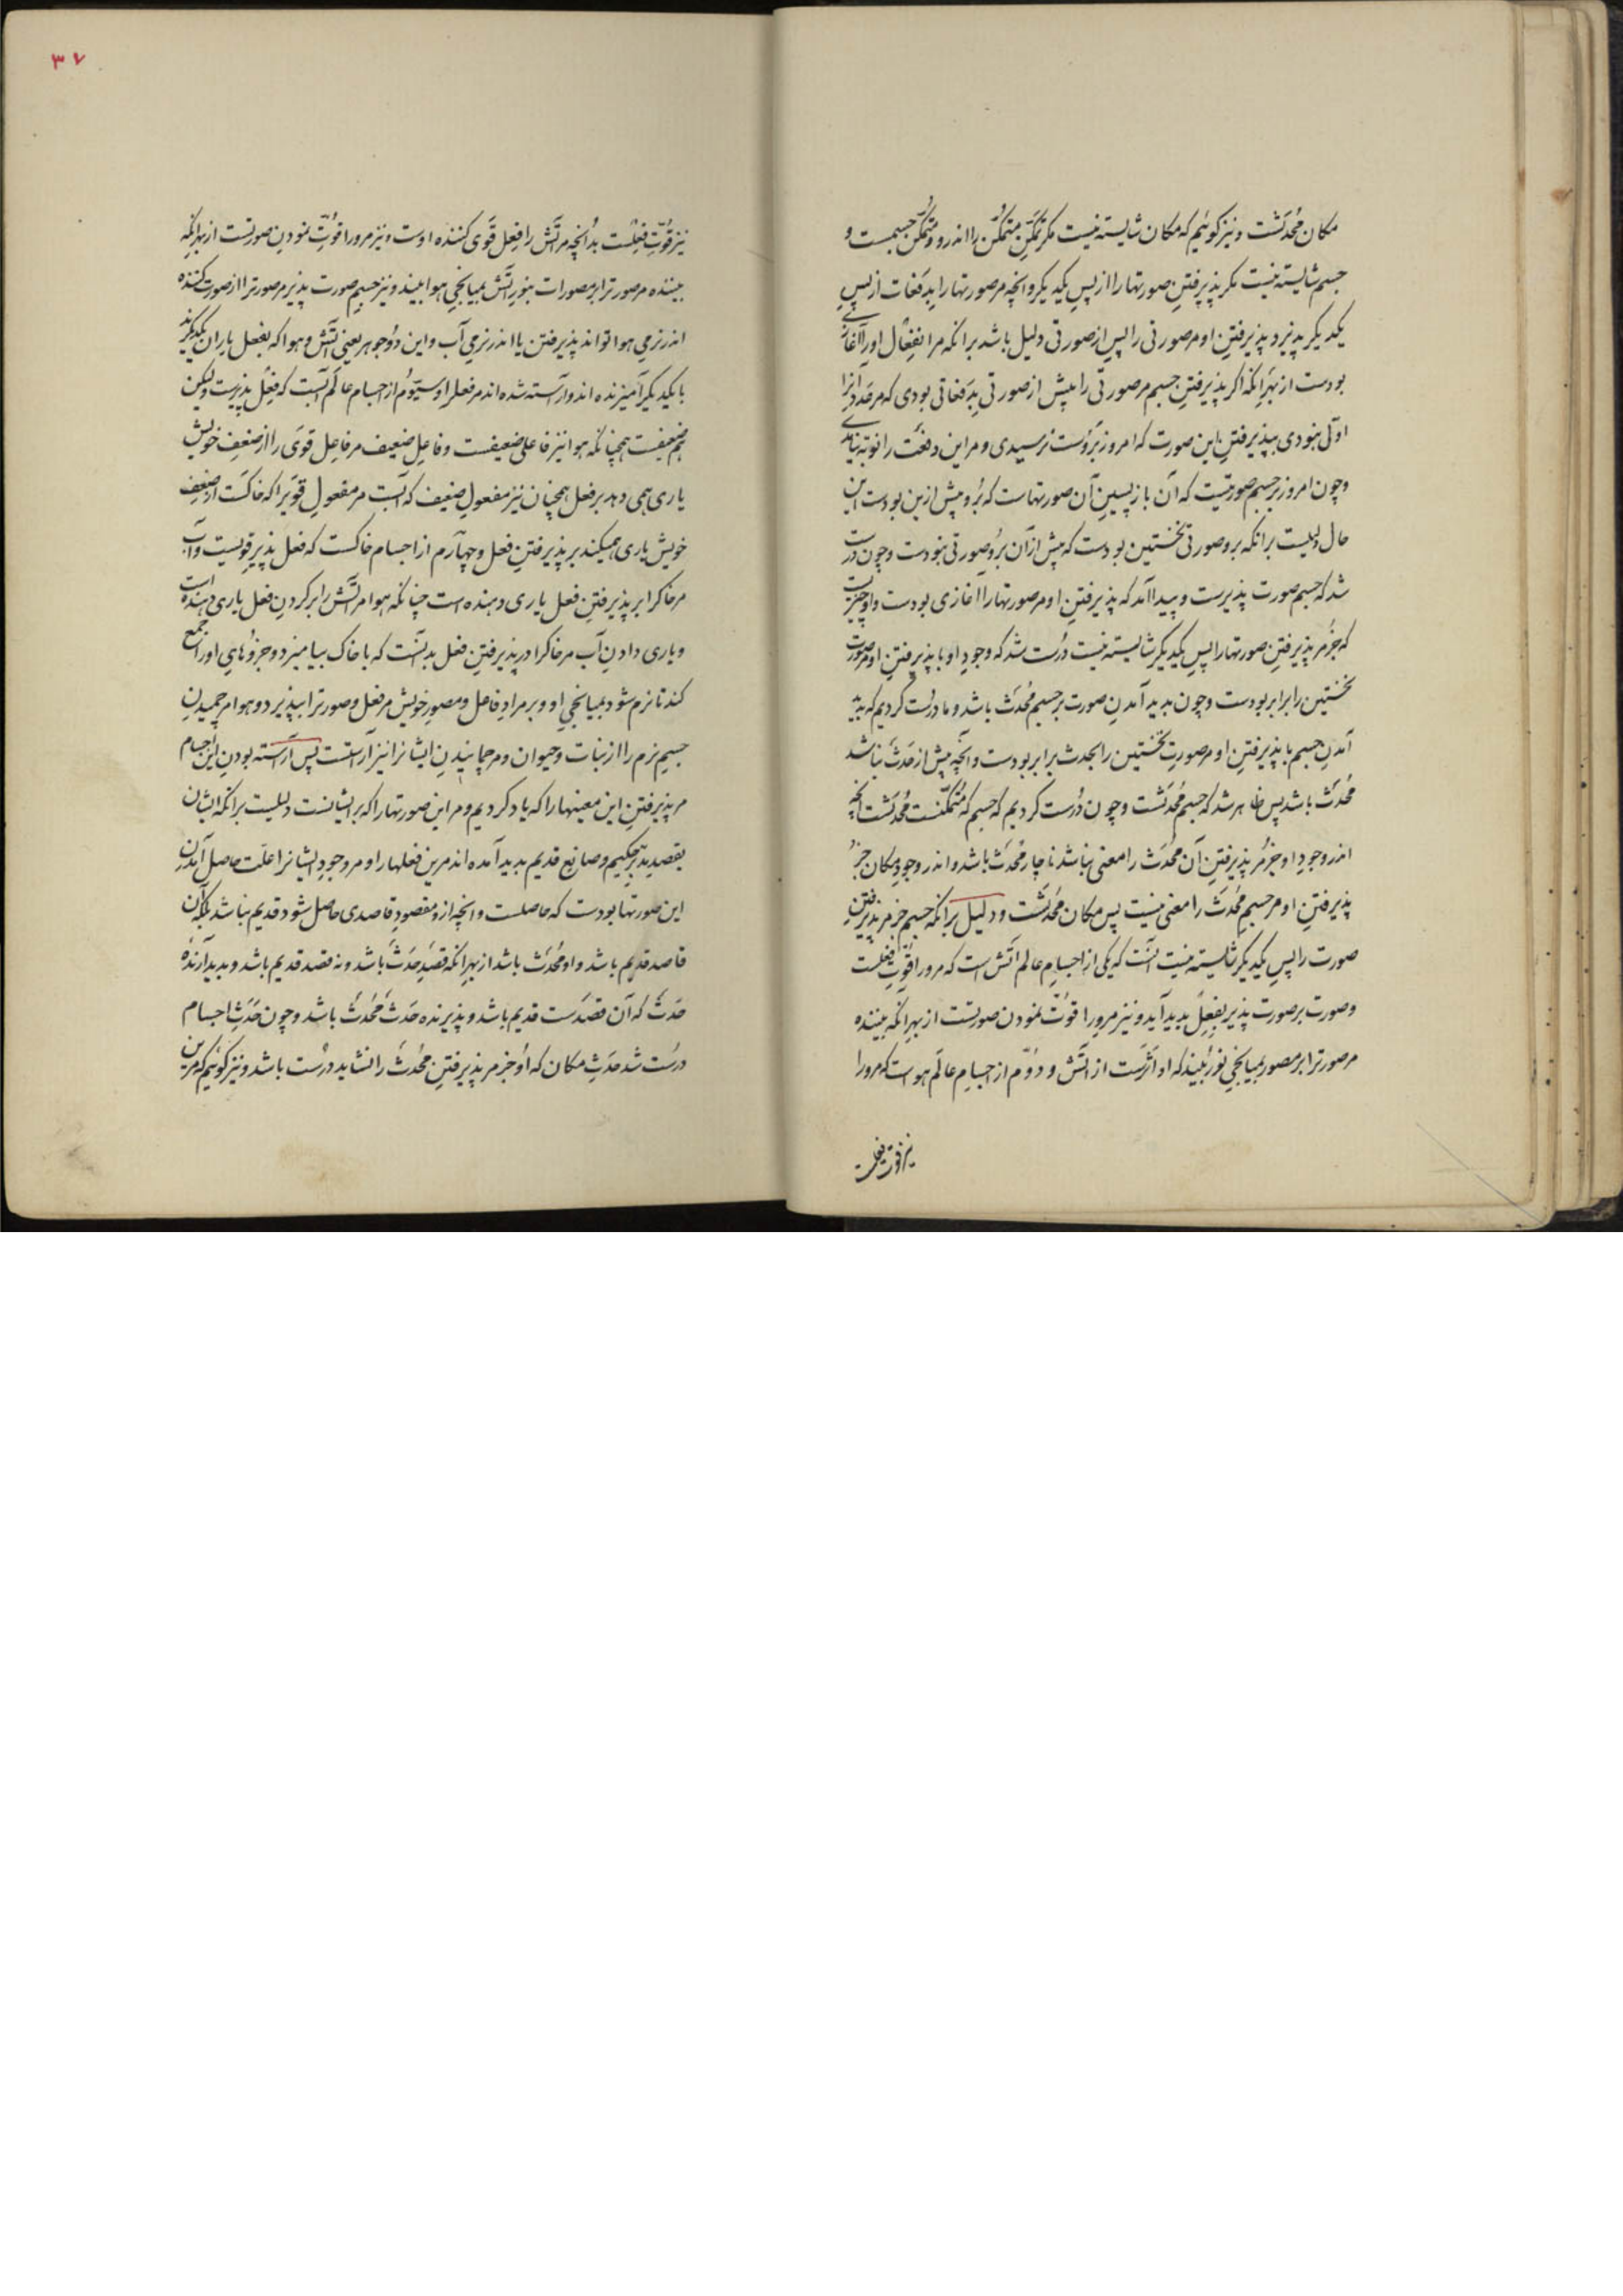 مکان مُحدَثست و نیز کوئیم که مکان شایسته نیست مکر تمکّنِ متمکّن را اندرو و متمکّن جسمست و
جسم شایسته نیست مکر پذیرفتنِ صورتها را از پسِ یکدیکر و انچه مر صورتها را بدفعات از پسِ
یکدیکر پذیرد پذیرفتنِ او مر صورتی را پس از صورتی دلیل باشد برانکه مر انفعال او را آغازی
بودست از بهر انکه اکر پذیرفتنِ جسم مر صورتی را پیش از صورتی بدفعاتی بودی که مر عدد آنرا
اوّلی نبودی بپذیرفتنِ این صورت که امروز بروست نرسیدی و مر این دفعت را نوبه نیامدی
و چون امروز بر جسم صورتیست که آن بازپسینِ آن صورتهاست که برو پیش ازین بودست این
حال دلیلست برانکه برو صورتی نخستین بودست که پیش از آن برو صورتی نبودست و چون درست
شد که جسم صورت پذیرست و پیدا آمد که پذیرفتنِ او مر صورتها را آغازی بودست و او چیزیست
که جز مر پذیرفتنِ صورتها را پسِ یکدیکر شایسته نیست درست شد که وجودِ او با پذیرفتنِ او مر صورت
نخستین را برابر بودست و چون بدید آمدنِ صورت بر جسم مُحدَث باشد و ما درست کردیم که بدید
آمدنِ جسم با پذیرفتنِ او مر صورتِ نخستین را بحدث برابر بودست و آنچه پیش از حدث نباشد
مُحدَث باشد پس ظاهر شد که جسم مُحدَثست و چون درست کردیم که جسم که متمکّنست مُحدَثست و انچه
اندر وجودِ او جز مر پذیرفتنِ آن مُحدَث را معنی نباشد ناچار مُحدَث باشد و اندر وجودِ مکان جز
پذیرفتنِ او مر جسمِ مُحدَث را معنی نیست پس مکان مُحدَثست و دلیل برانکه جسم جز مر پذیرفتنِ
صورت را پسِ یکدیکر شایسته نیست آنست که یکی از اجسامِ عالم آتش است که مرو را قوّتِ فعلست
و صورت بر صورت پذیر بفعلِ بدید آید و نیز مرو را قوّت نمودن صورتست از بهر انکه بیننده
مر صورترا بر مصور بمیانجیِ نور بیند که او اثرست از آتش و دوّم از اجسامِ عالم هواست که مرو را
نیز قوّت فعلست
۳۷
نیز قوّتِ فعلست بدانچه مر آتش را فعل قوی کننده اوست و نیز مرو را قوّتِ نمودن صورتست از بهر انکه
بیننده مر صورترا بر مصورات بنورِ آتش بمیانجیِ هوا بیند و نیز جسمِ صورت پذیر مر صورترا از صورت کننده
اندر نرمیِ هوا تواند پذیرفتن یا اندر نرمیِ آب و این دو جوهر یعنی آتش و هوا که بفعل یارانِ یکدیکرند
با یکدیکر آمیزنده اند و آراسته شده اند مر فعل را و سیّوم از اجسام عالم آبست که فعل پذیرست ولیکن
هم ضعیفست همچنانکه هوا نیز فاعلی ضعیفست و فاعلِ ضعیف مر فاعل قوی را از ضعفِ خویش
یاری همی دهد بر فعل همچنان نیز مفعولِ ضعیف که آبست مر مفعولِ قویرا که خاکست از ضعفِ
خویش یاری همیکند بر پذیرفتنِ فعل و چهارم از اجسام خاکست که فعل پذیر قویست و آب
مر خاکرا بر پذیرفتنِ فعل یاری دهنده است چنانکه هوا مر آتش را بر کردنِ فعل یاری دهنده است
و یاری دادنِ آب مر خاکرا در پذیرفتنِ فعل بدانست که با خاک بیامیزد و جزوهایِ او را جمع
کند تا نرم شود بمیانجیِ او و بر مرادِ فاعل و مصورِ خویش مر فعل و صورترا بپذیرد و هوا مر جمیدنِ
جسیمِ نرم را از نبات و حیوان و مر جمانیدنِ ایشانرا نیز آراستست پس آراسته بودنِ این اجسام
مر پذیرفتنِ این معینها را که یاد کردیم و مر این صورتها را که بر ایشانست دلیلست برانکه ایشان
بقصدِ مدبّرِ حکیم و صانعِ قدیم بدید آمده اند مرین فعلها را و مر وجودِ ایشانرا علّت حاصل آمدنِ
این صورتها بودست که حاصلست و انچه از و مقصودِ قاصدی حاصل شود قدیم نباشد بلکه آن
قاصد قدیم باشد و او مُحدَث باشد از بهر انکه قصد حدث باشد و نه قصد قدیم باشد و بدید آرندهٔ
حدث که آن قصدست قدیم باشد و پذیرنده حدث مُحدَث باشد و چون حدثِ اجسام
درست شد حدثِ مکان که او جز مر پذیرفتنِ مُحدَث را نشاید درست باشد و نیز کوئیم که مرین